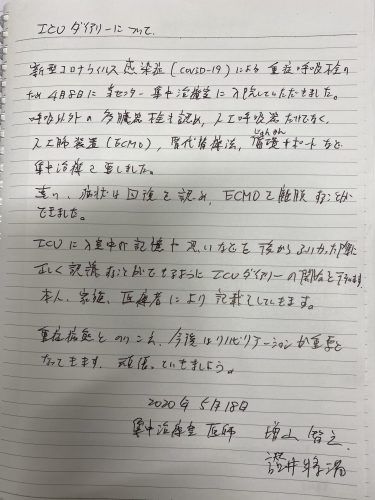 ICUダイアリーについて.
新型コロナウイルス感染症(COVID-19)による重症呼吸不全の
ため4月8日に当センター集中治療室に入院していただきました。
呼吸以外の多臓器不全も認め,人工呼吸器だけでなく,
人工肺装置(ECMO),腎代替療法,循環サポートなど
じゅんかん
集中治療を要しました。
幸い,病状は回復を認め,ECMOを離脱することが
できました。
ICUに入室中の記憶や思いなどを後からふりかえった際に
正しく認識することができるようにICUダイアリーの開始を
本人,家族,医療者により記載をしていきます。
重症病態をのりこえ,今後はリハビリテーションが重要と
なってきます. 頑張っていきましょう。
2020年 5月18日
集中治療室 医師 増山 智之
讃井 將満